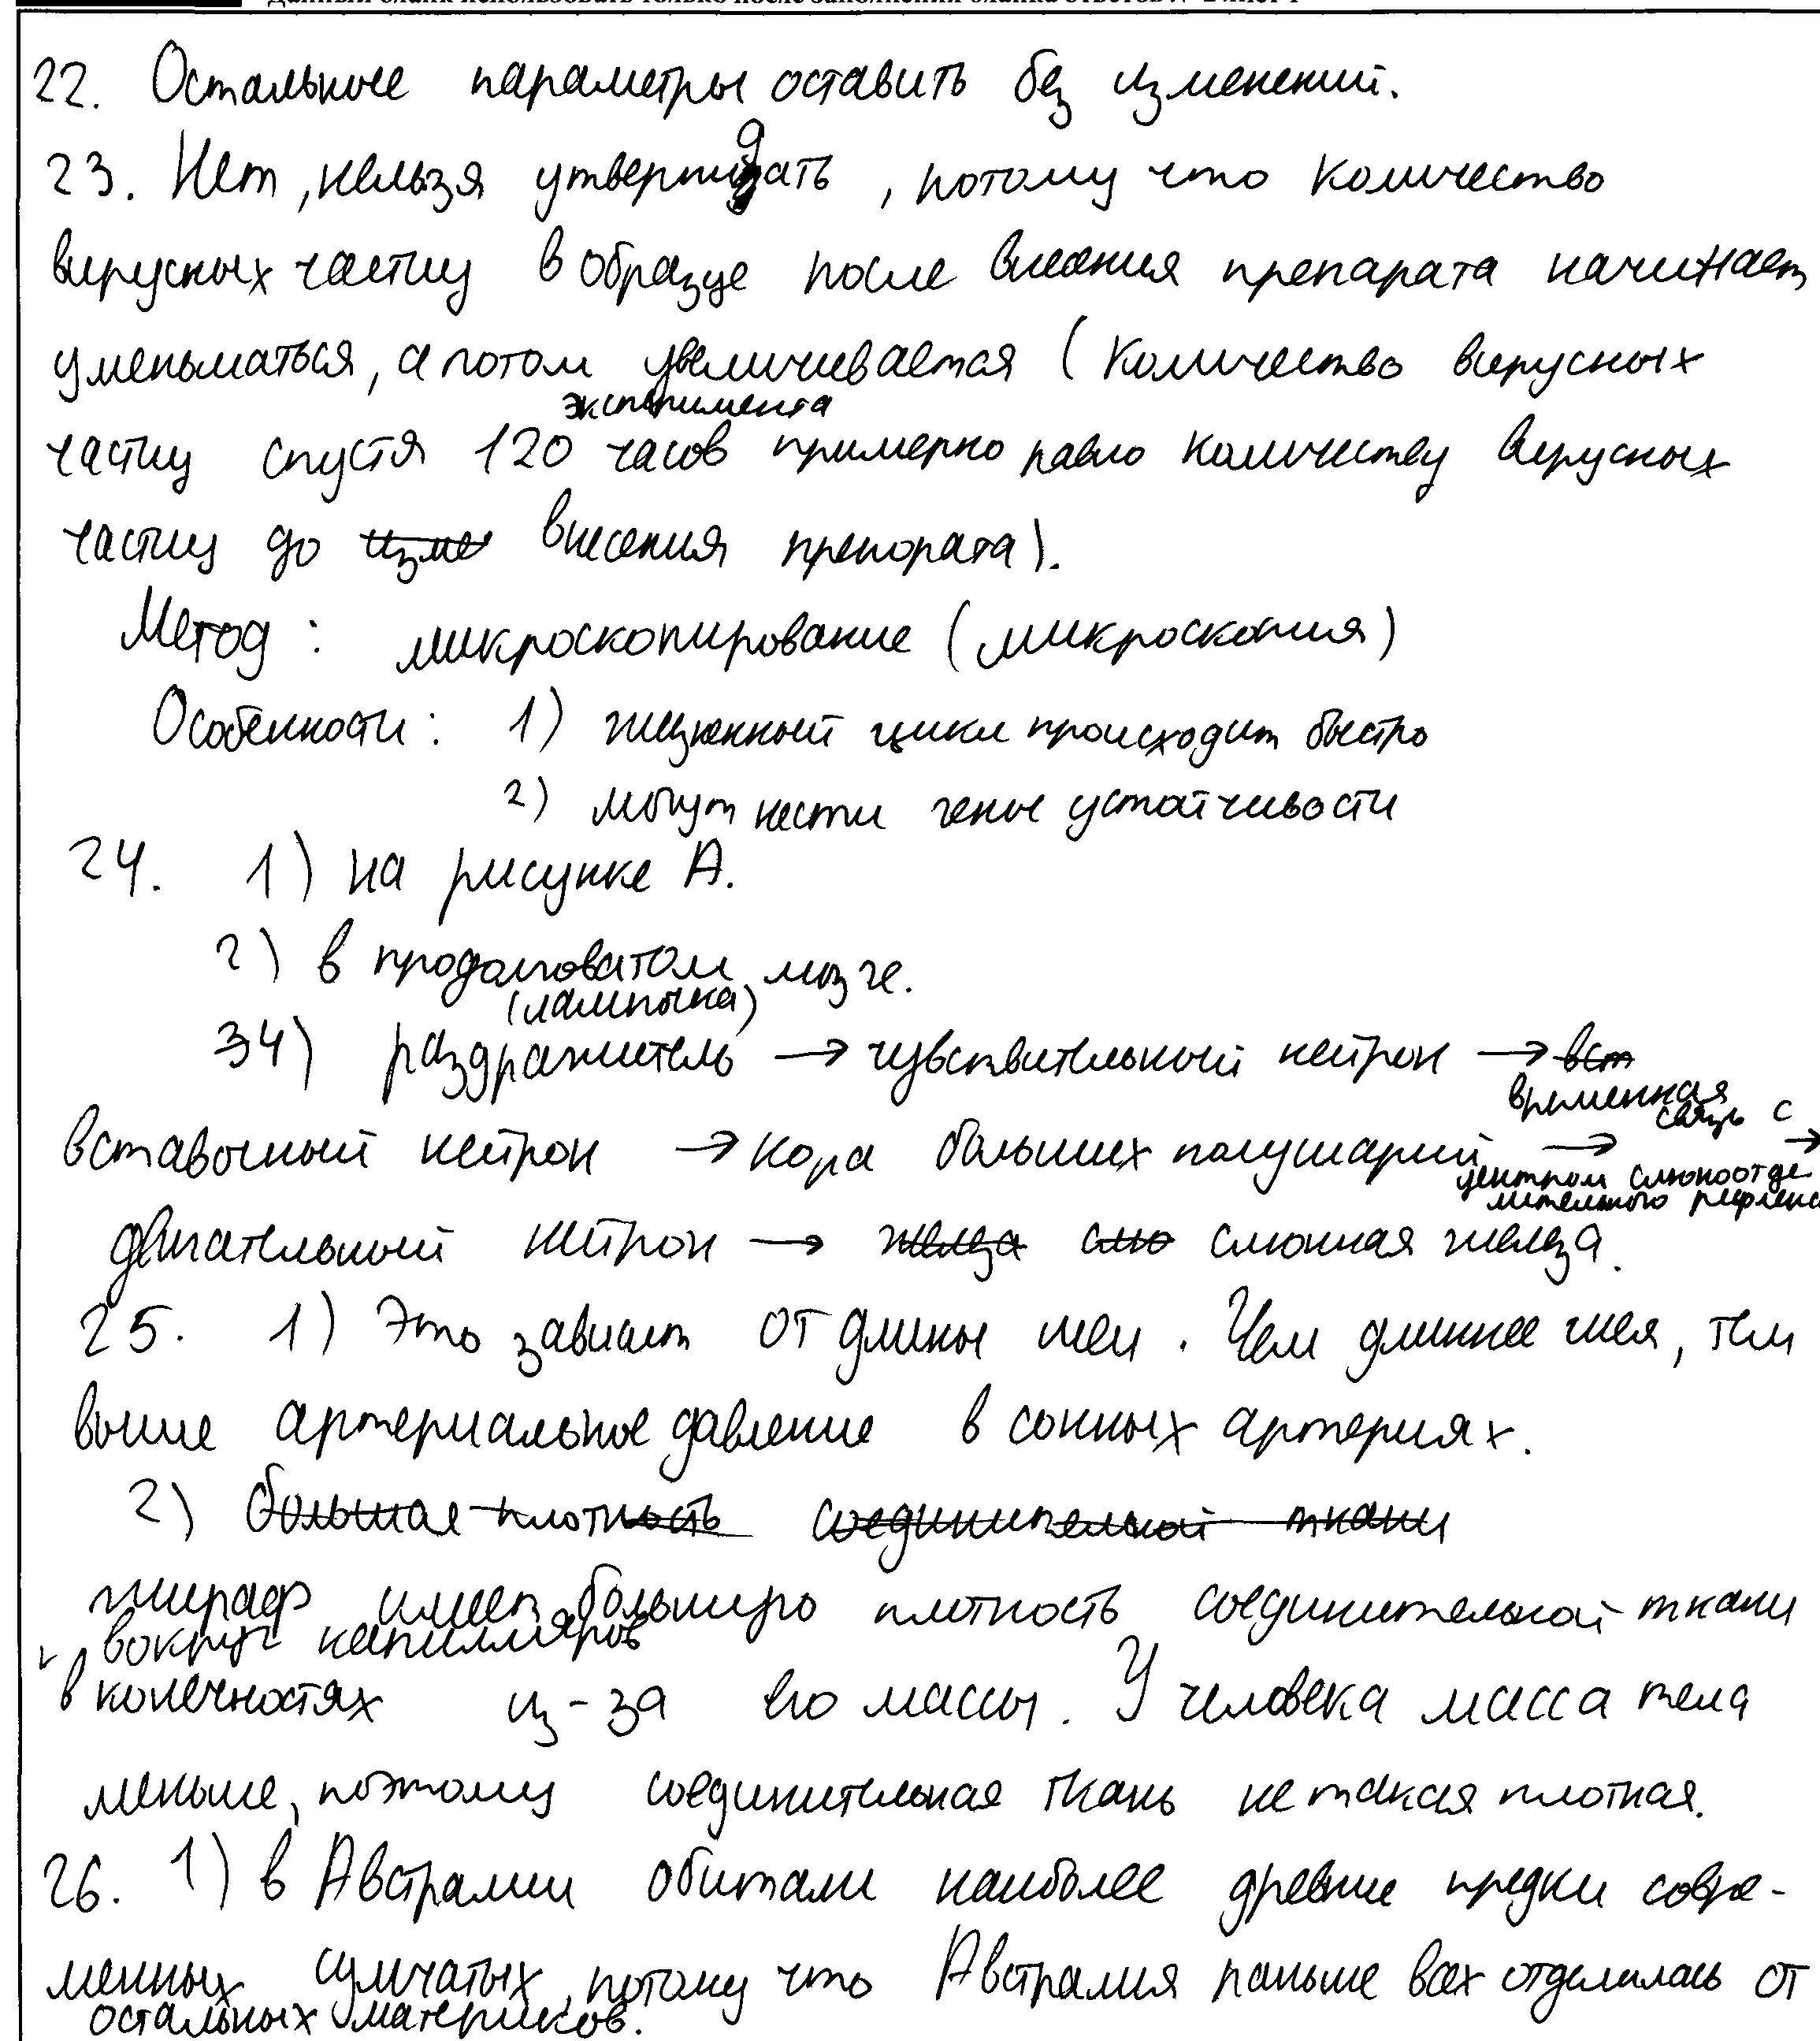 22. Остальные параметры оставить без изменений.
23. Нет, нельзя утверждать, потому что количество
вирусных частиц в образце после внесения препарата начинает
уменьшаться, а потом увеличивается (количество вирусных
эксперимента
частиц спустя 120 часов примерно равно количеству вирусных
частиц до изме внесения препората).
Метод: микроскопирование (микроскопия)
Особенности: 1) жизненный цикл происходит быстро
2) могут нести гены устойчивости
24. 1) на рисунке А.
2) в продолговатом мозге.
(лампочка)
34) раздражитель → чувствительный нейрон → вст
временная
связь с
вставочный нейрон → кора больших полушарий → →
центром слюноотде
лительного рефлекса
двигательный нейрон → железа слю слюнная железа.
25. 1) Это зависит от длины шеи. Чем длиннее шея, тем
выше артериальное давление в сонных артериях.
2) большая плотность соединительной ткани
жираф имеет большую плотность соединительной ткани
вокруг капилляров
в конечностях из-за его массы. У человека масса тела
меньше, поэтому соединительная ткань не такая плотная.
26. 1) в Австралии обитали наиболее древние предки совре-
менных сумчатых, потому что Австралия раньше всех отделилась от
остальных материков.